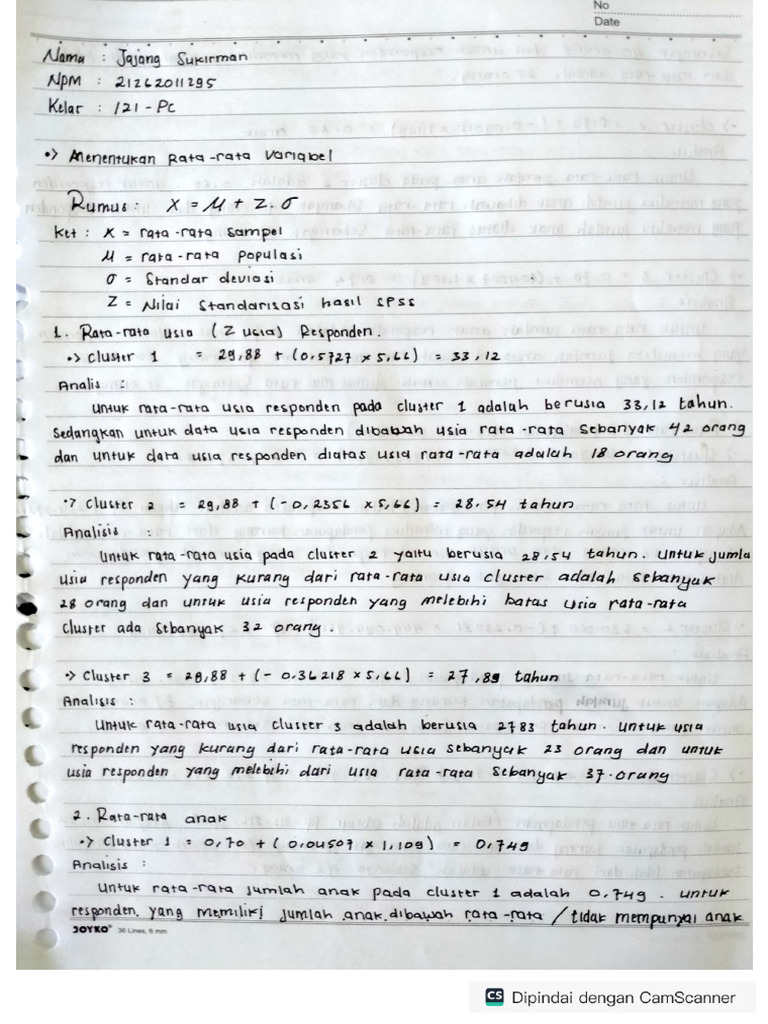 No
Date
Nama : Jajang Sukirman
NPM : 21262011295
Kelas : 121 - PC
•> Menentukan Rata-rata Variabel
Rumus : X = μ + Z.σ
Ket : X = rata-rata sampel
μ = rata-rata populasi
σ = Standar deviasi
Z = Nilai Standarisasi hasil SPSS
1. Rata-rata usia (Z usia) Responden.
•> Cluster 1 = 29,88 + (0,5727 x 5,66) = 33,12
Analis :
Untuk rata-rata usia responden pada cluster 1 adalah berusia 33,12 tahun.
Sedangkan untuk data usia responden dibabwah usia rata-rata sebanyak 42 orang
dan untuk data usia responden diatas usia rata-rata adalah 18 orang
•> Cluster 2 = 29,88 + (-0,2356 x 5,66) = 28.54 tahun
Analisis :
Untuk rata-rata usia pada cluster 2 yaitu berusia 28,54 tahun. Untuk jumla
usia responden yang kurang dari rata-rata usia cluster adalah sebanyak
28 orang dan untuk usia responden yang melebihi batas usia rata-rata
cluster ada sebanyak 32 orang.
•> Cluster 3 = 28,88 + (-0.36218 x 5,66) = 27,89 tahun
Analisis :
Untuk rata-rata usia cluster 3 adalah berusia 2783 tahun. untuk usia
responden yang kurang dari rata-rata usia sebanyak 23 orang dan untuk
usia responden yang melebihi dari usia rata-rata sebanyak 37.orang
2. Rata-rata anak
•> Cluster 1 = 0,70 + (0.04507 x 1,109) = 0,749
Analisis :
Untuk rata-rata jumlah anak pada cluster 1 adalah 0,749. untuk
responden yang memiliki jumlah anak dibawah rata-rata / tidak mempunyai anak
JOYKO 36 Lines, 6 mm
CS Dipindai dengan CamScanner